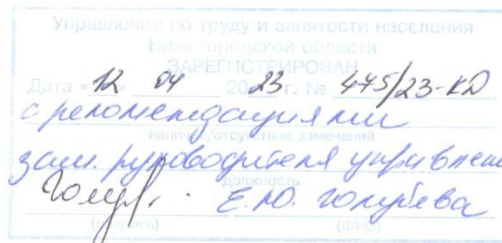 Управление по труду и занятости населения
Нижегородской области
ЗАРЕГИСТРИРОВАН
Дата «12» 04 2023 г. № 475/23-КД
с рекомендациями
наличие/отсутствие замечаний
зам. руководителя управлен
должность
Голуб. Е.Ю. Голубева
(подпись) (ФИО)